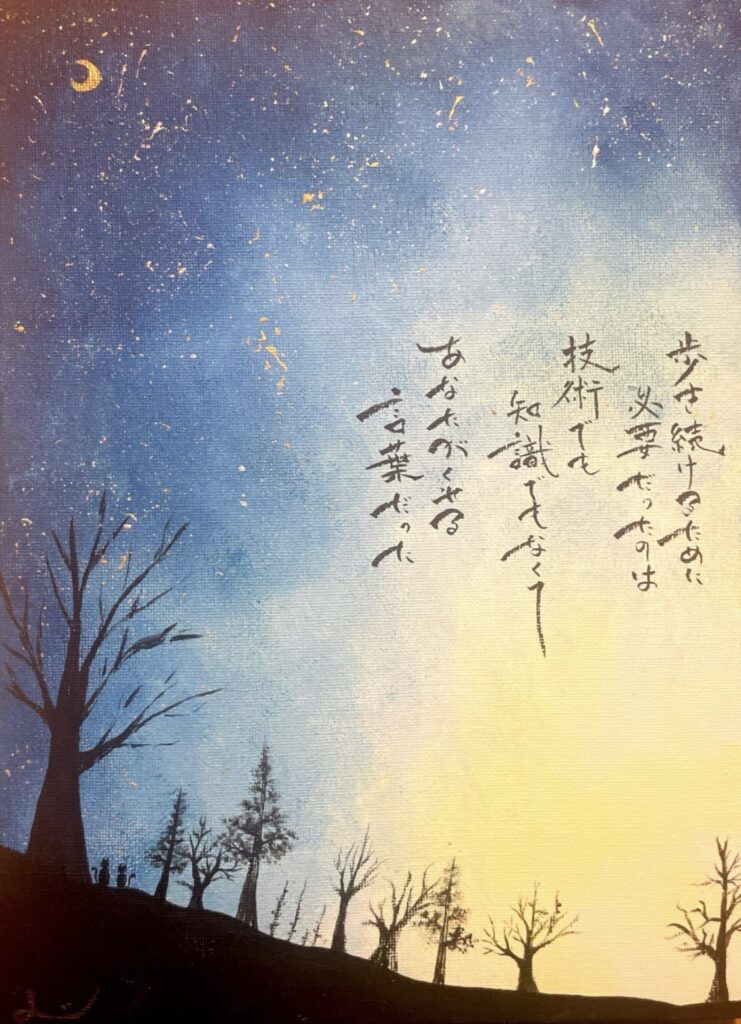 歩き続けるために
必要だったのは
技術でも
知識でもなくて
あなたがくせる
言葉だった